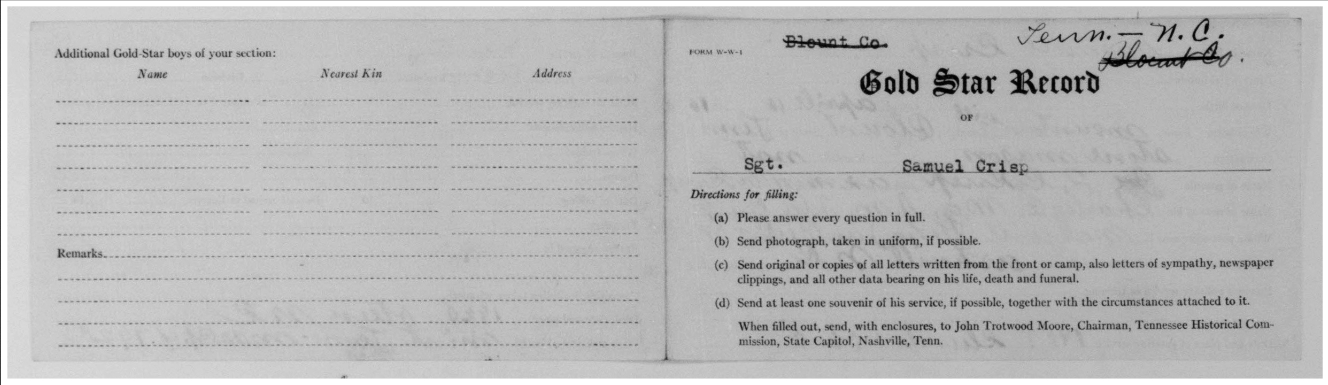 Additional Gold-Star boys of your section:
Name Nearest Kin Address
Remarks
FORM W-W-1
Blount Co.
Tenn. — N. C.
Blount Co.
Gold Star Record
OF
Sgt. Samuel Crisp
Directions for filling:
(a) Please answer every question in full.
(b) Send photograph, taken in uniform, if possible.
(c) Send original or copies of all letters written from the front or camp, also letters of sympathy, newspaper
clippings, and all other data bearing on his life, death and funeral.
(d) Send at least one souvenir of his service, if possible, together with the circumstances attached to it.
When filled out, send, with enclosures, to John Trotwood Moore, Chairman, Tennessee Historical Com-
mission, State Capitol, Nashville, Tenn.